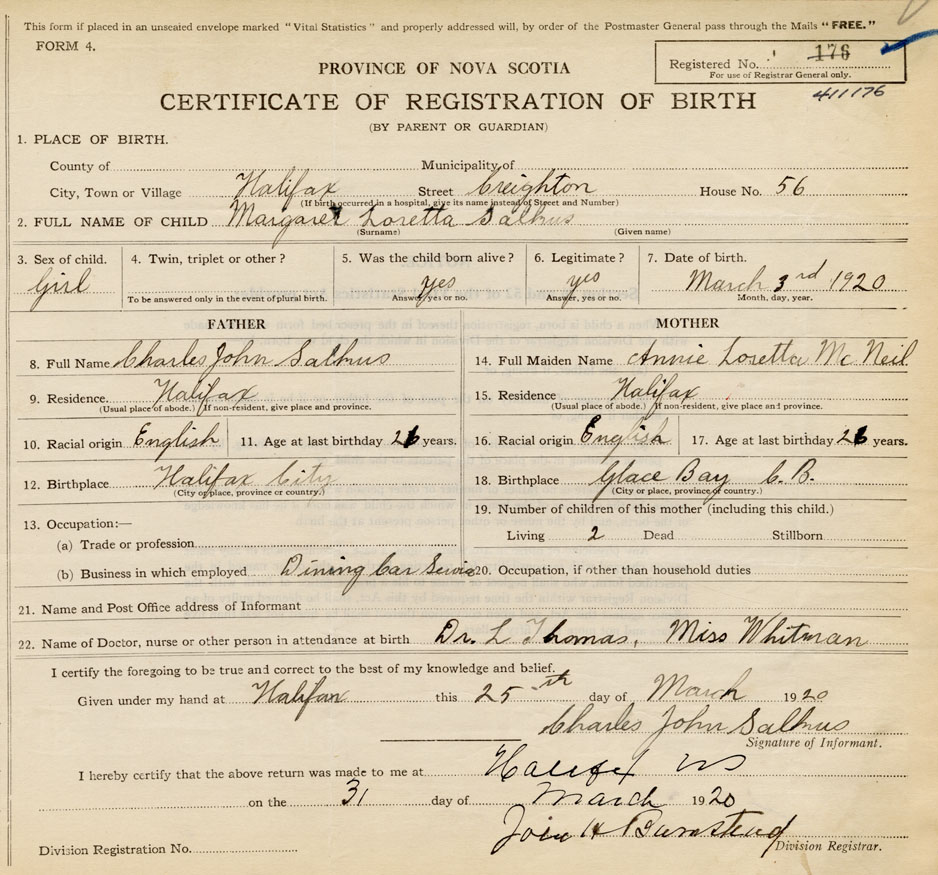 This form if placed in an unseated envelope marked "Vital Statistics" and properly addressed will, by order of the Postmaster General pass through the Mails "FREE."
FORM 4.
Registered No. 176
For use of Registrar General only.
411176
PROVINCE OF NOVA SCOTIA
CERTIFICATE OF REGISTRATION OF BIRTH
(BY PARENT OR GUARDIAN)
1. PLACE OF BIRTH.
County of Municipality of
City, Town or Village Halifax Street Creighton House No. 56
(If birth occurred in a hospital, give its name instead of Street and Number)
2. FULL NAME OF CHILD Margaret Loretta Salhus
(Surname) (Given name)
3. Sex of child. Girl
4. Twin, triplet or other?
To be answered only in the event of plural birth.
5. Was the child born alive? yes
Answer, yes or no.
6. Legitimate? yes
Answer, yes or no.
7. Date of birth.
March 3rd 1920
Month, day, year.
FATHER
8. Full Name Charles John Salhus
9. Residence. Halifax
(Usual place of abode.) If non-resident, give place and province.
10. Racial origin English 11. Age at last birthday 26 years.
12. Birthplace Halifax City
(City or place, province or country.)
13. Occupation:—
(a) Trade or profession
(b) Business in which employed Dining Car Service
MOTHER
14. Full Maiden Name Annie Loretta McNeil
15. Residence Halifax
(Usual place of abode.) If non-resident, give place and province.
16. Racial origin English 17. Age at last birthday years.
18. Birthplace Glace Bay C.B.
(City or place, province or country.)
19. Number of children of this mother (including this child.)
Living 2 Dead Stillborn
20. Occupation, if other than household duties
21. Name and Post Office address of Informant
22. Name of Doctor, nurse or other person in attendance at birth Dr. L Thomas, Miss Whitman
I certify the foregoing to be true and correct to the best of my knowledge and belief.
Given under my hand at Halifax this 25th day of March 1920
Charles John Salhus
Signature of Informant.
I hereby certify that the above return was made to me at Halifax NS
on the 31 day of March 1920
John H Barnstead
Division Registration No. Division Registrar.